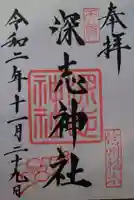 奉拝
深志神社
令和二年十一月二十九日